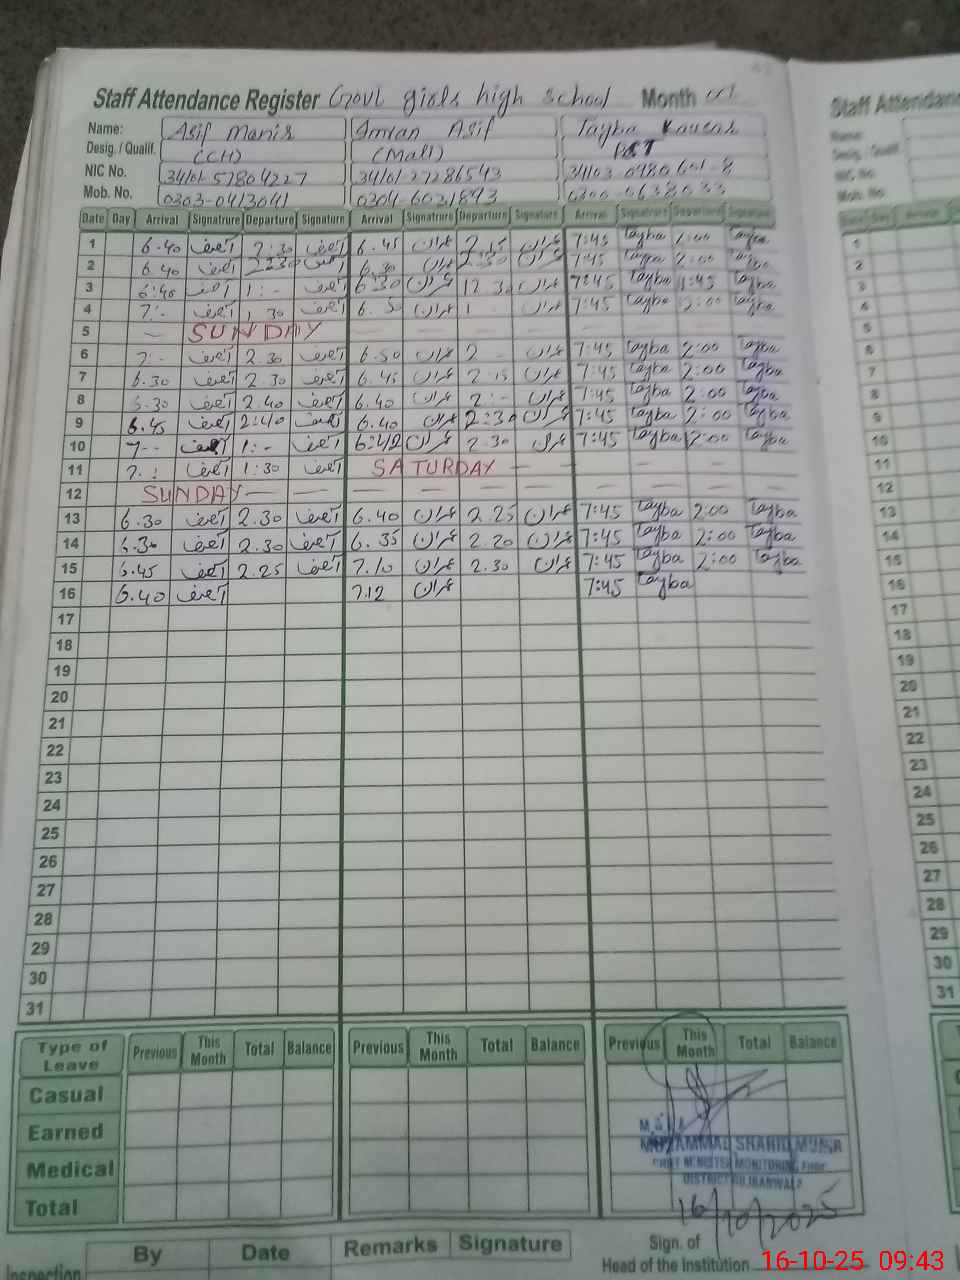 Staff Attendance Register Govt girls high school Month Oct
Name: Asif Manis Imran Asif Tayba Kausar
Desig. / Qualif. (CH) (Mali) PST
NIC No. 34101-57804227 34101-27286543 34103-0980601-8
Mob. No. 0303-0413041 0304-6031893 0300-0638033
Date Day Arrival Signatrure Departure Signature Arrival Signatrure Departure Signature Arrival Signatrure Departure Signature
1 6.40 آصف 2:30 آصف 6.45 عمران 2.15 عمران 7:45 Tayba 2:00 Tayba
2 6.40 آصف 2:30 آصف 6.30 عمران 2:30 عمران 7:45 Tayba 2:00 Tayba
3 6:40 آصف 1:- آصف 6.30 عمران 12.30 عمران 7:45 Tayba 11:45 Tayba
4 7:- آصف 1.30 آصف 6.50 عمران 1 7:45 Tayba 12:00 Tayba
5 — SUNDAY
6 7:- آصف 2.30 آصف 6.50 عمران 2 - عمران 7:45 Tayba 2:00 Tayba
7 6.30 آصف 2.30 آصف 6.45 عمران 2.15 عمران 7:45 Tayba 2:00 Tayba
8 6.30 آصف 2.40 آصف 6.40 عمران 2:- عمران 7:45 Tayba 2:00 Tayba
9 6.45 آصف 2:40 آصف 6.40 عمران 2:30 عمران 7:45 Tayba 2:00 Tayba
10 7-- آصف 1:- آصف 6:42 عمران 2.30 عمران 7:45 Tayba 12:00 Tayba
11 7.: آصف 1:30 آصف SATURDAY — — — — — —
12 SUNDAY — — — — — — — — — —
13 6.30 آصف 2.30 آصف 6.40 عمران 2.25 عمران 7:45 Tayba 2:00 Tayba
14 6.30 آصف 2.30 آصف 6.35 عمران 2.20 عمران 7:45 Tayba 2:00 Tayba
15 6.45 آصف 2.25 آصف 7.10 عمران 2.30 عمران 7:45 Tayba 2:00 Tayba
16 6.40 آصف 7.12 عمران 7:45 Tayba
17
18
19
20
21
22
23
24
25
26
27
28
29
30
31
Type of Leave Previous This Month Total Balance Previous This Month Total Balance Previous This Month Total Balance
Casual
Earned
Medical
Total
MUZAMMAL SHAHID
CHIEF MINISTER MONITORING
DISTRICT GUJRANWALA
16/10/2025
By Date Remarks Signature
Inspection
Sign. of
Head of the Institution
Staff Attendance
Name:
Desig. / Qualif.
NIC No.
Mob. No.
1
2
3
4
5
6
7
8
9
10
11
12
13
14
15
16
17
18
19
20
21
22
23
24
25
26
27
28
29
30
31
16-10-25 09:43